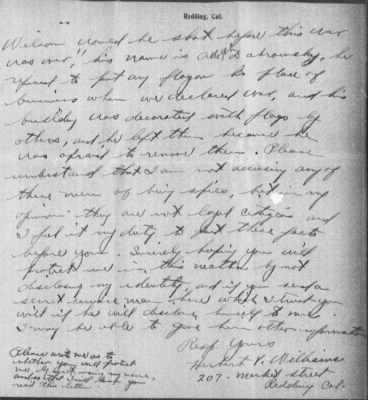 Redding, Cal.
Wilson would be shot before this war
was over", his name is Dobrowsky, he
refused to put any flag on his place of
business when we declared war, and his
building was decorated with flags by
others, and he left them because he
was afraid to remove them. Please
understand that I am not accusing any of
these men of being spies, but in my
opinion they are not loyal citizens and
I felt it my duty to put these facts
before you. Sincerely hoping you will
protect me in this matter by not
disclosing my identity, and if you send a
secret service man here which I trust you
will if he will disclose himself to me
I may be able to give him other information
Resp. Yours
Herbert V. Williams
207 - Market Street
Redding Cal.
Please write me as to
whether you will protect
me by not using my name,
and so that I will know you
read this letter